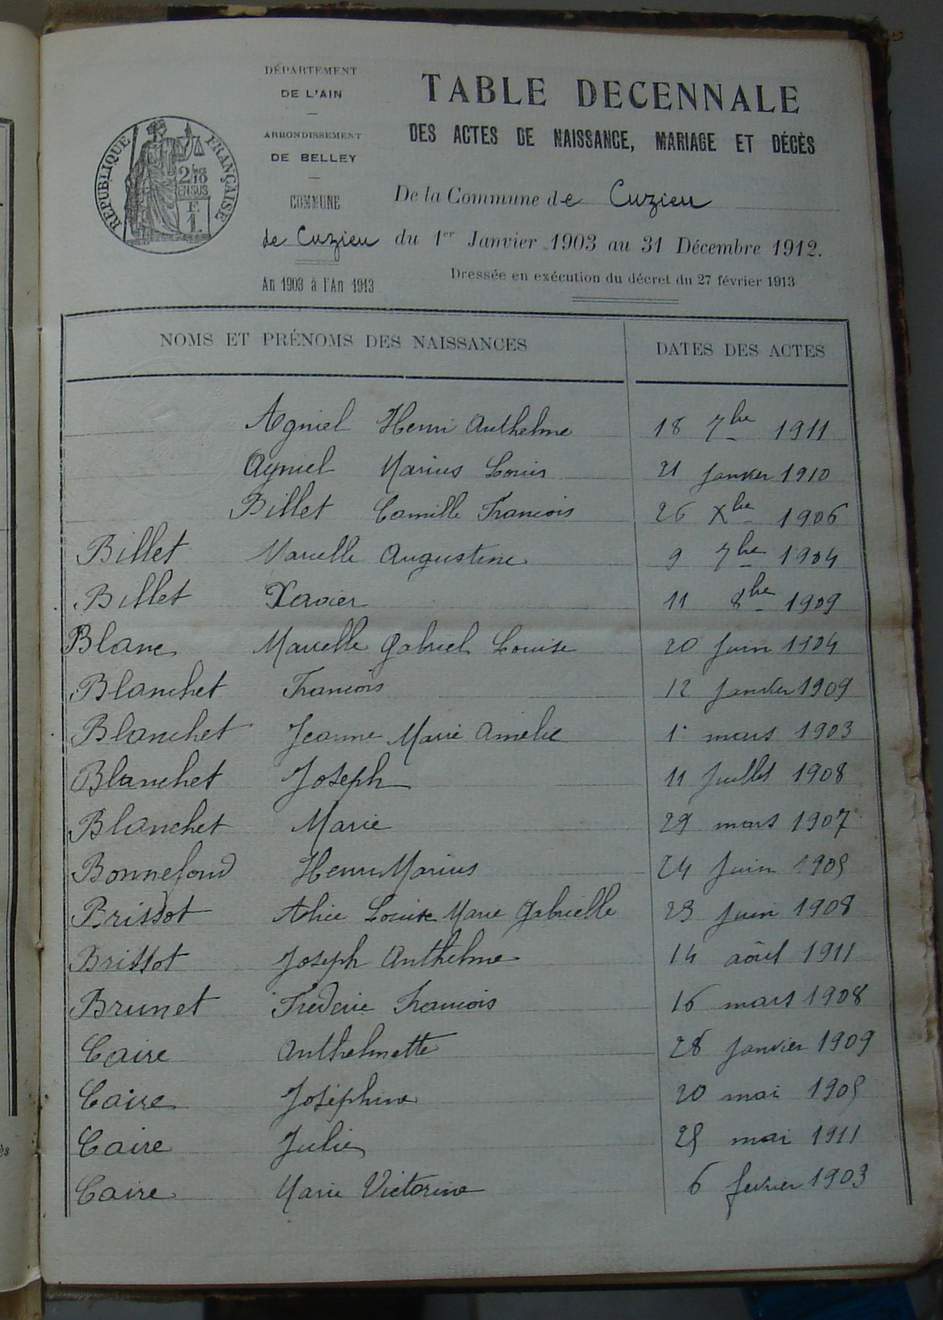 DÉPARTEMENT
DE L'AIN
ARRONDISSEMENT
DE BELLEY
COMMUNE
de Cuzieu
An 1903 à l'An 1913
RÉPUBLIQUE FRANÇAISE
TABLE DECENNALE
DES ACTES DE NAISSANCE, MARIAGE ET DÉCÈS
De la Commune de Cuzieu
du 1er Janvier 1903 au 31 Décembre 1912.
Dressée en exécution du décret du 27 février 1913
NOMS ET PRÉNOMS DES NAISSANCES DATES DES ACTES
Agniel Henri Anthelme 18 7bre 1911
Agniel Marius Louis 21 janvier 1910
Billet Camille Francois 26 Xbre 1906
Billet Marcelle Augustine 9 7bre 1904
Billet Xavier 11 8bre 1909
Blanc Marcelle Gabriel Louise 20 juin 1904
Blanchet Francois 12 janvier 1909
Blanchet Jeanne Marie Amelie 1 mars 1903
Blanchet Joseph 11 juillet 1908
Blanchet Marie 29 mars 1907
Bonnefond Henri Marius 24 juin 1905
Brissot Alice Louise Marie Gabrielle 23 juin 1908
Brissot Joseph Anthelme 14 août 1911
Brunet Frederic Francois 16 mars 1908
Caire Anthelmette 28 janvier 1909
Caire Joséphine 20 mai 1905
Caire Julie 25 mai 1911
Caire Marie Victorine 6 fevrier 1903